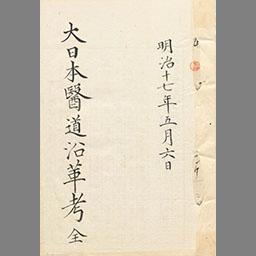 明治十七年五月六日
大日本醫道沿革考 全